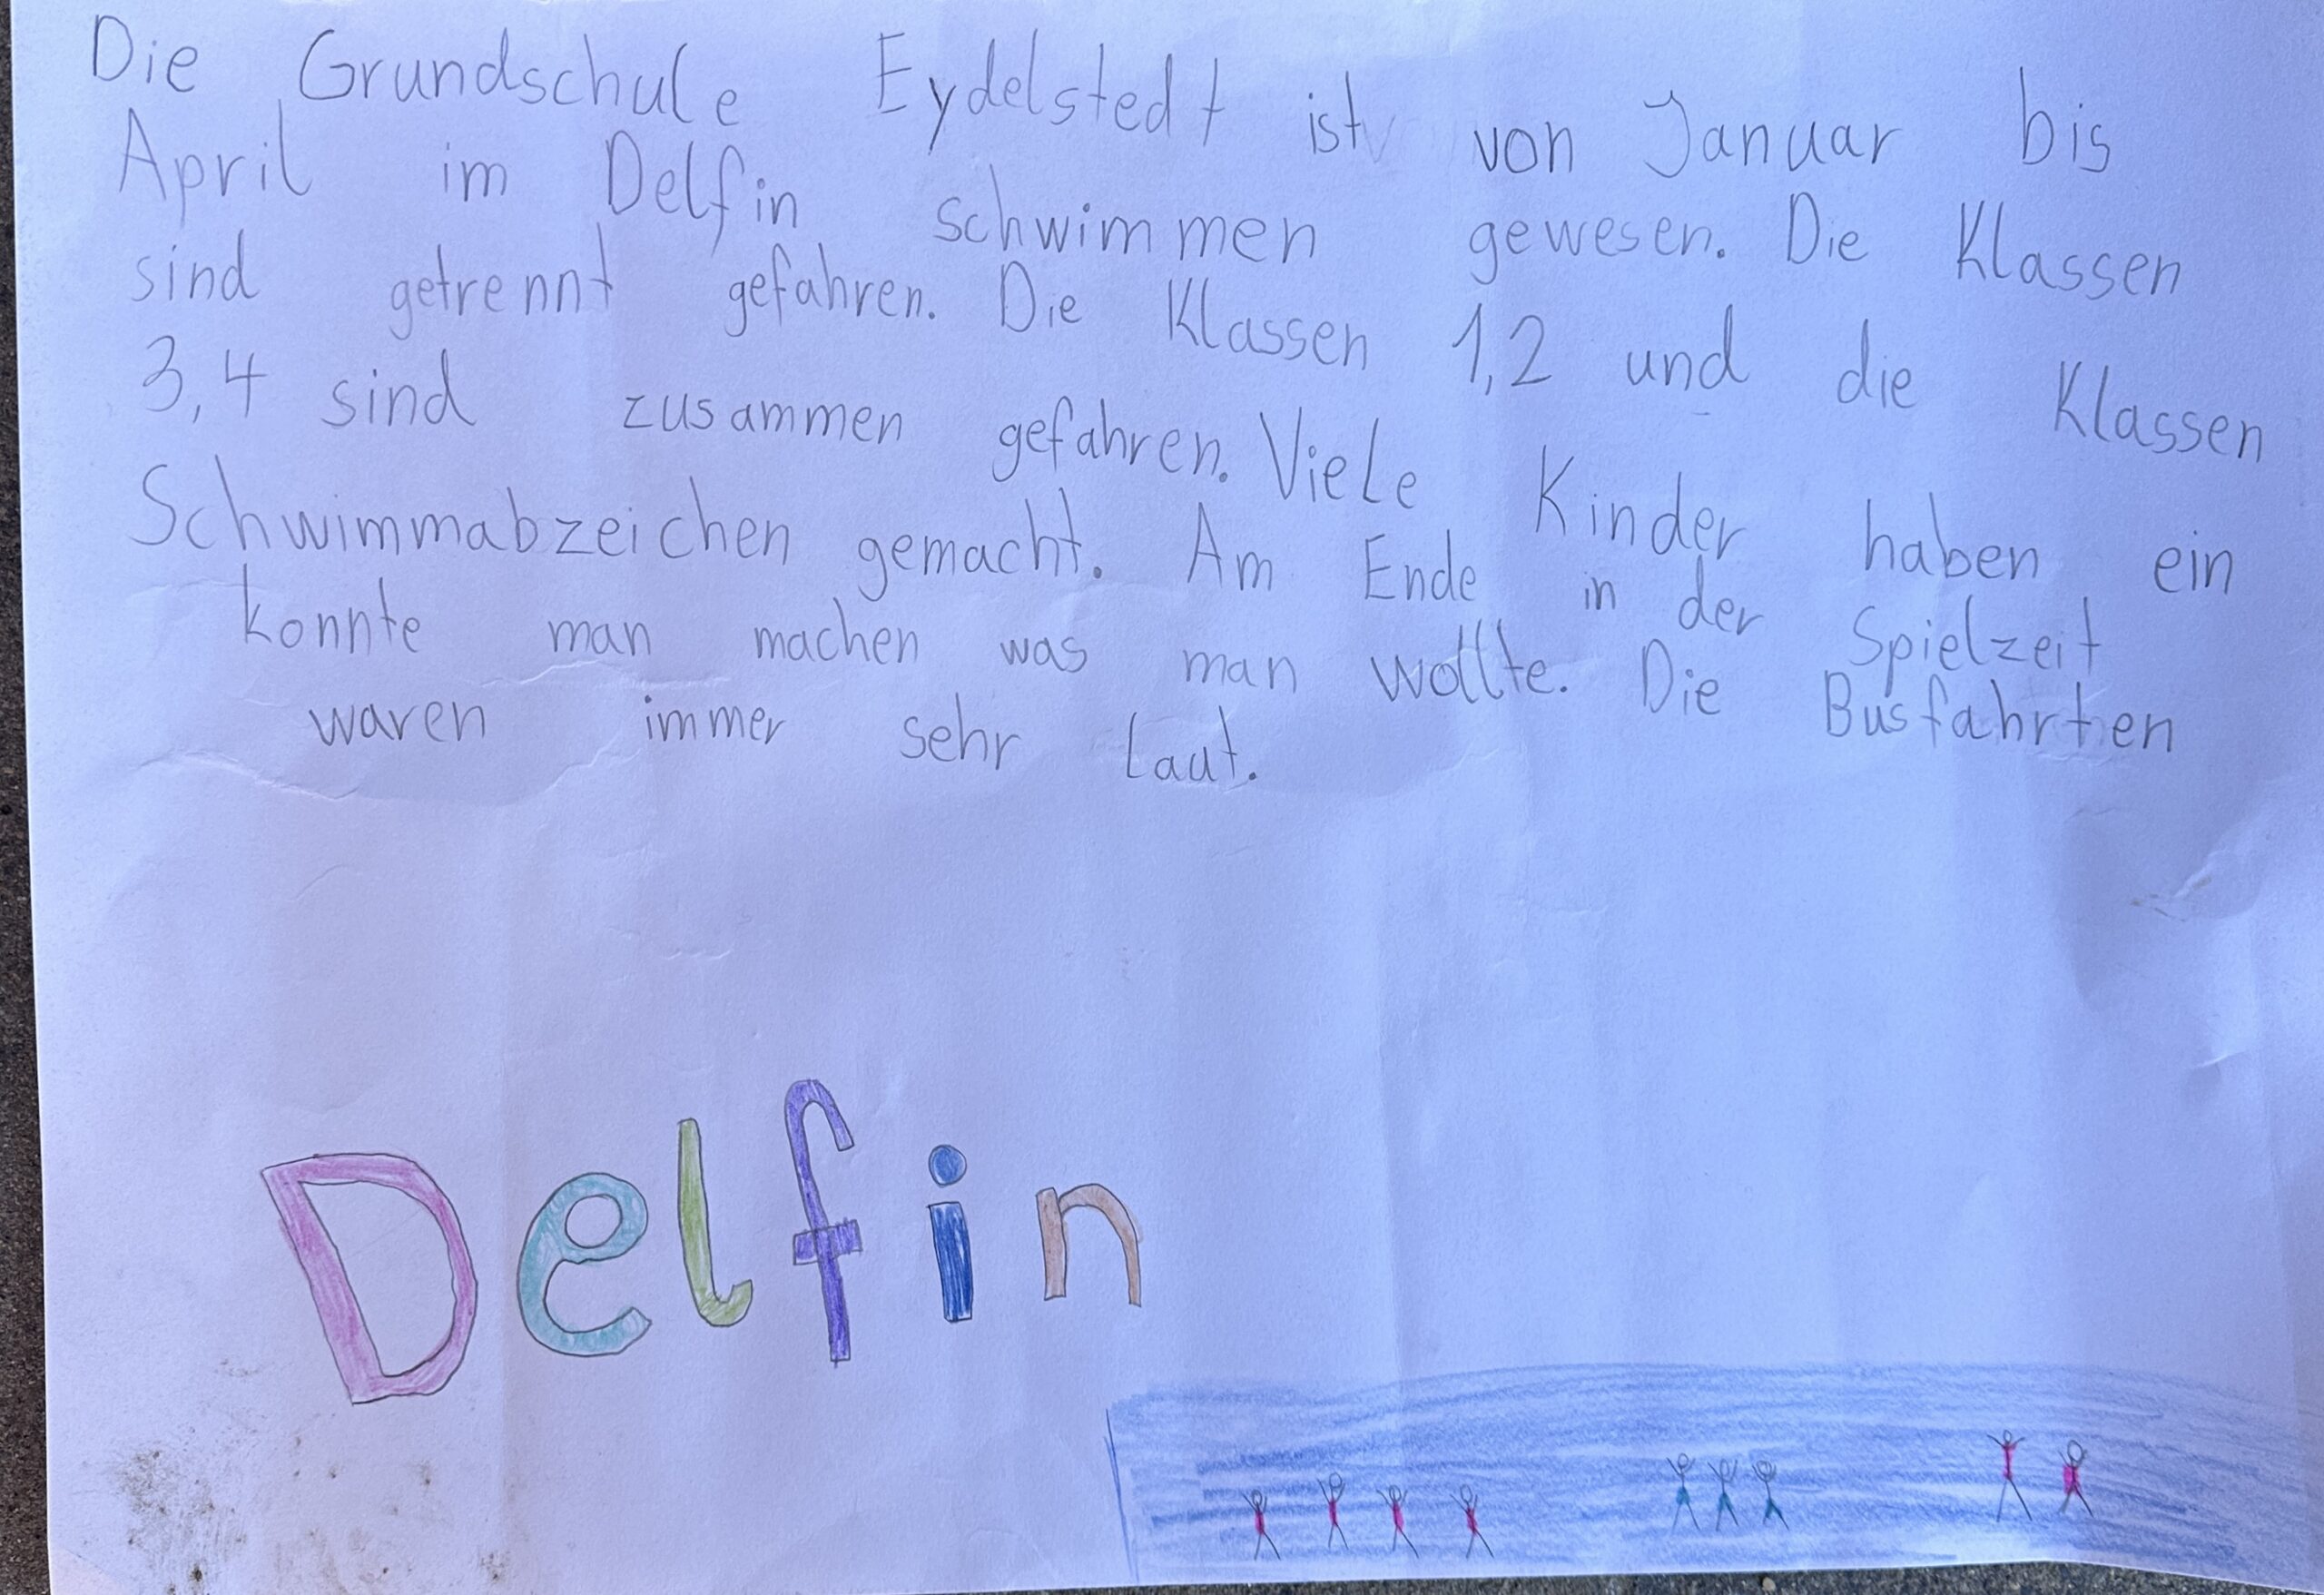 Die Grundschule Eydelstedt ist von Januar bis
April im Delfin schwimmen gewesen. Die Klassen
sind getrennt gefahren. Die Klassen 1,2 und die Klassen
3,4 sind zusammen gefahren. Viele Kinder haben ein
Schwimmabzeichen gemacht. Am Ende in der Spielzeit
konnte man machen was man wollte. Die Busfahrten
waren immer sehr laut.
Delfin